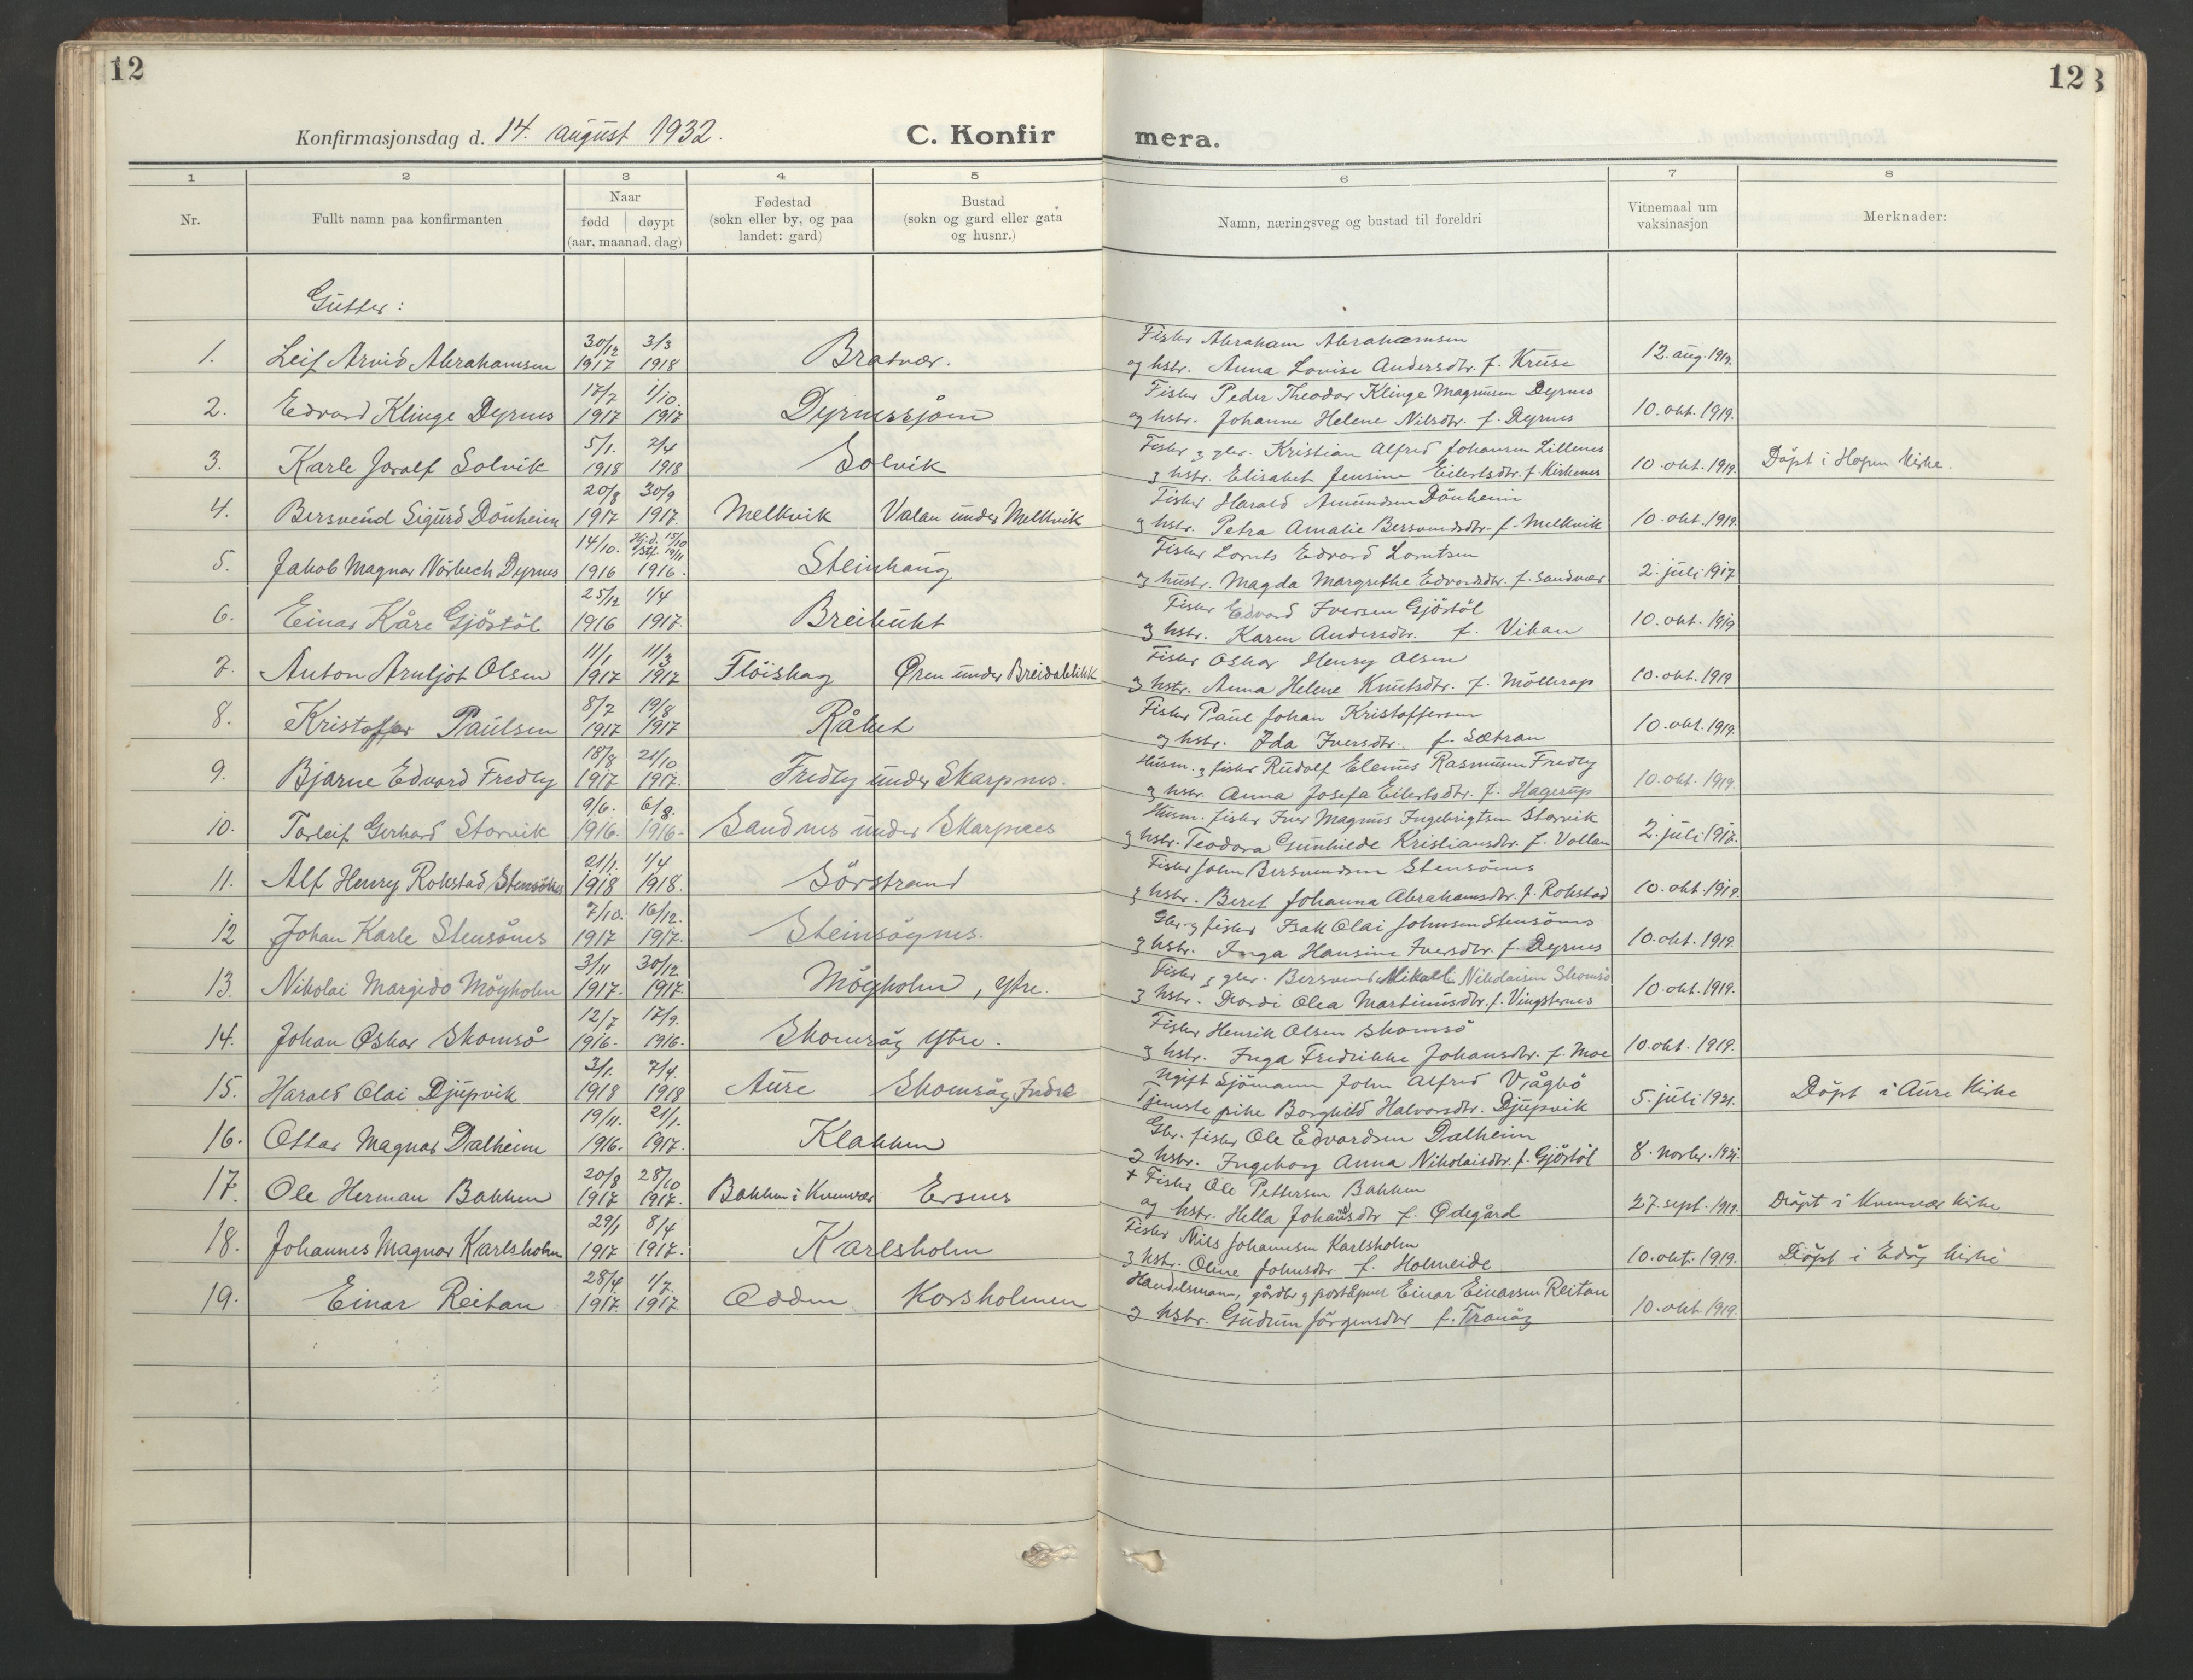 12
12
3
Konfirmasjonsdag d. 14. august 1932.
C. Konfir mera.
1 2 3 4 5 6 7 8
Nr.
Fullt namn paa konfirmanten
Naar
fødd døypt
(aar, maanad. dag)
Fødestad
(sokn eller by, og paa
landet: gard)
Bustad
(sokn og gard eller gata
og husnr.)
Namn, næringsveg og bustad til foreldri
Vitnemaal um
vaksinasjon
Merknader:
Gutter:
30/12 3/3 Fisker Abraham Abrahamsen
1. Leif Arvid Abrahamsen 1917 1918 Bratvær. og hstr. Anna Lovise Andersdtr. f. Kruse 12. aug. 1919.
17/7 1/10. Fisker Peder Theodor Klinge Magnusen Dyrnes
2. Edvard Klinge Dyrnes 1917 1917 Dyrnessjøen og hstr. Johanne Helene Nilsdtr. f. Dyrnes 10. okt. 1919.
5/1. 7/4 Fisker og gbr. Kristian Alfred Johansen Lillenes
3. Karle Joralf Solvik 1918 1918 Solvik og hstr. Elisabet Jensine Eilertsdtr. f. Kirkenes 10. okt. 1919. Döpt i Hopen kirke.
20/8 30/9 Fisker Harald Amundsen Dönheim
4. Bersvend Sigurd Dönheim 1917 1917. Melkvik Valan under Melkvik og hstr. Petra Amalie Bersvendsdtr. f. Melkvik 10. okt. 1919.
14/10. Hj.d. 15/10 Stf. 19/11 Fisker Lornts Edvard Lorntsen
5. Jakob Magnar Nörbech Dyrnes 1916 1916. Steinhaug og hustr. Magda Margrethe Edvardsdtr. f. Sandvær 2. juli 1917
25/12 1/4 Fisker Edvard Iversen Gjöstöl
6. Einar Kåre Gjöstöl 1916 1917. Breibukt og hstr. Karen Andersdtr. f. Vikan 10. okt. 1919
11/1 11/3 Fisker Oskar Henry Olsen
7. Anton Arnljot Olsen 1917 1917 Flöiskag Øren under Breidablikk og hstr. Anna Helene Knutsdtr. f. Möllerop 10. okt. 1919
8/7 19/8 Fisker Paul Johan Kristoffersen
8. Kristoffer Paulsen 1917 1917 Råket og hstr. Ida Iversdtr. f. Sætran 10. okt. 1919.
18/8 21/10 Husm. og fisker Rudolf Elenus Rasmusen Fredly
9. Bjarne Edvard Fredly 1917 1917. Fredly under Skarpnes. og hstr. Anna Josefa Eilertsdtr. f. Hagerup 10. okt. 1919.
9/6. 6/8. Husm. fisker Iver Magnus Ingebrigtsen Storvik
10. Torleif Gerhard Storvik 1916. 1916. Sandnes under Skarpnes og hstr. Teodora Gunhilde Kristiansdtr. f. Vollan 2. juli 1917.
21/1. 1/4 Fisker John Bersvendsen Stensönes
11. Alf Henry Rokstad Stensönes 1918 1918. Sörstrand og hstr. Beret Johanna Abrahamsdtr. f. Rokstad 10. okt. 1919.
7/10. 16/12. Gbr. og fisker Isak Olai Johnsen Stensönes
12 Johan Karle Stensönes 1917 1917. Steinsöynes. og hstr. Inga Hansine Iversdtr. f. Dyrnes 10. okt. 1919.
3/11 30/12 Fisker og gbr. Bersvend Mikal Nikolaisen Skomsö
13. Nikolai Margido Möyholm 1917. 1917. Möyholm, Ytre. og hstr. Dordi Olea Martinusdtr. f. Vingsternes 10. okt. 1919.
12/7 17/9. Fisker Henrik Olsen Skomsö
14. Johan Oskar Skomsö 1916. 1916. Skomsöy Ytre. og hstr. Inga Fredrikke Johansdtr. f. Moe 10. okt. 1919.
3/1. 7/4. Ugift Sjömann John Alfred Vågbö
15. Harald Olai Djupvik 1918 1918 Aure Skomsöy Indre Tjeneste pike Borghild Halvorsdtr. Djupvik 5. juli 1921. Döpt i Aure Kirke
19/11. 21/1. Gbr. fisker Ole Edvardsen Dalheim
16. Ottar Magnar Dalheim 1916. 1917. Klakken og hstr. Ingeborg Anna Nikolaisdtr. f. Gjöstöl 8. novbr. 1921.
20/8 28/10 + Fisker Ole Pettersen Bakken
17. Ole Herman Bakken 1917 1917. Bakken i Kvenvær Ersnes og hstr. Hella Johansdtr f. Ødegård 27. sept. 1919. Döpt i Kvenvær Kirke
29/1 8/4 Fisker Nils Johannesen Karlsholm
18. Johannes Magnar Karlsholm 1917 1917. Karlsholm og hstr. Oline Johnsdtr f. Holmeide 10. okt. 1919. Döpt i Edöy kirke
28/4. 1/7. Handelsmann, gårdbr og poståpner Einar Einarsen Reitan
19. Einar Reitan 1917. 1917. Odden Korsholmen og hstr. Gudrun Jörgensdtr f. Tranöy 10. okt. 1919.